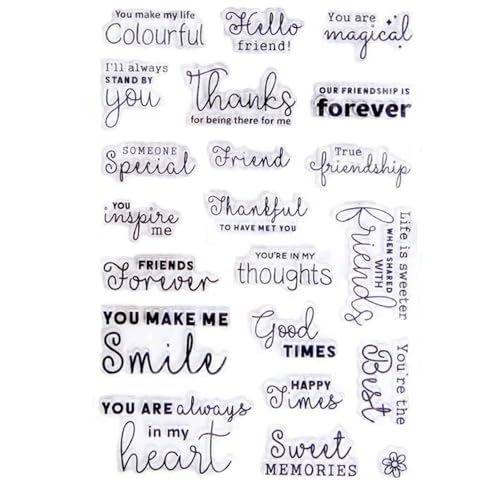 You make my life
Colourful
Hello
friend!
You are
magical
I'll always
STAND BY
you
Thanks
for being there for me
OUR FRIENDSHIP IS
forever
SOMEONE
Special
Friend
True
friendship
YOU
inspire
me
Thankful
TO HAVE MET YOU
Life is sweeter
WHEN SHARED
WITH
friends
FRIENDS
Forever
YOU'RE IN MY
thoughts
YOU MAKE ME
Smile
Good
TIMES
You're the
Best
HAPPY
Times
YOU ARE always
in my
heart
Sweet
MEMORIES